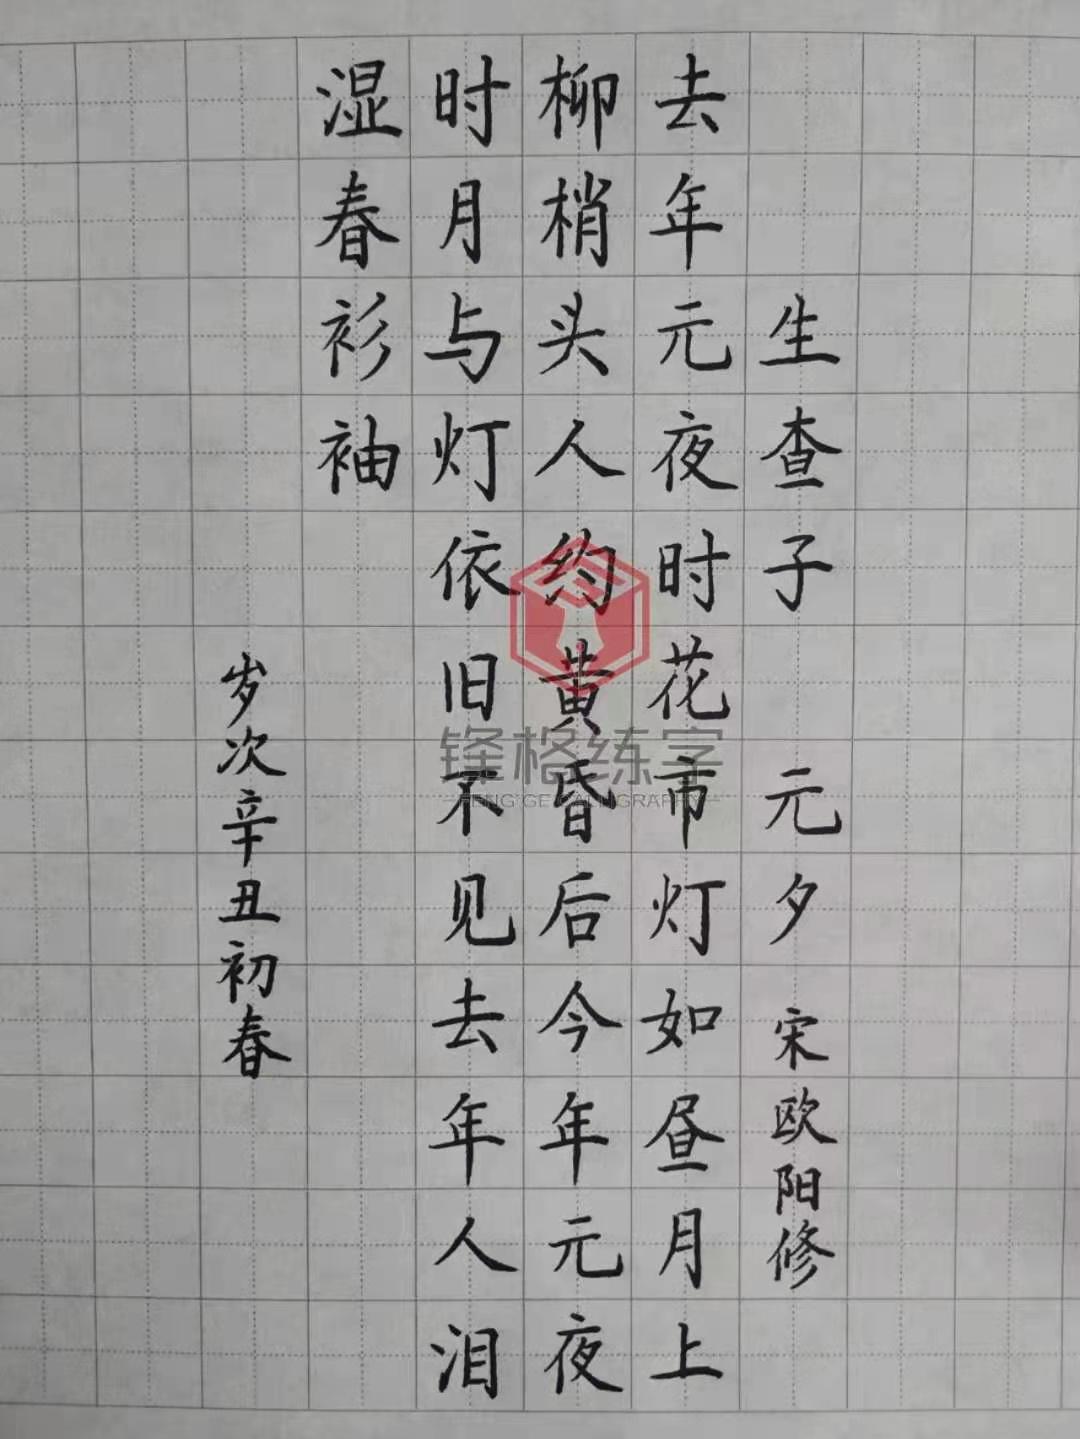 生查子 元夕 宋欧阳修
去年元夜时花市灯如昼月上
柳梢头人约黄昏后今年元夜
时月与灯依旧不见去年人泪
湿春衫袖
岁次辛丑初春
锋格练字
FENG GE CALLIGRAPHY